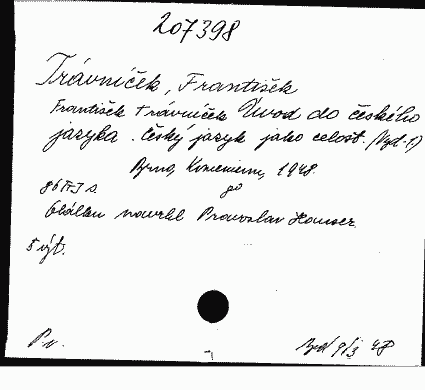 207398
Trávníček, František
František Trávníček Úvod do českého
jazyka. Český jazyk jako celost. (Vyd. 1)
Brno, Komenium, 1948.
86 s. 8°
Obálku navrhl Pravoslav Hauser
5 výt.